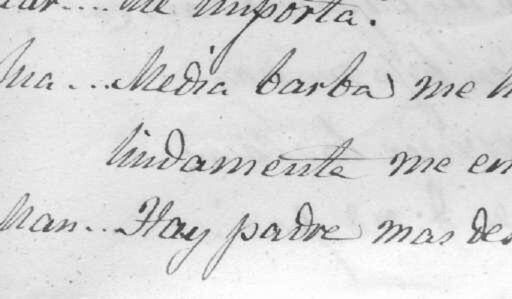 me importa.
Media barba me
lindamente me en
Man.. Hay padre mas des